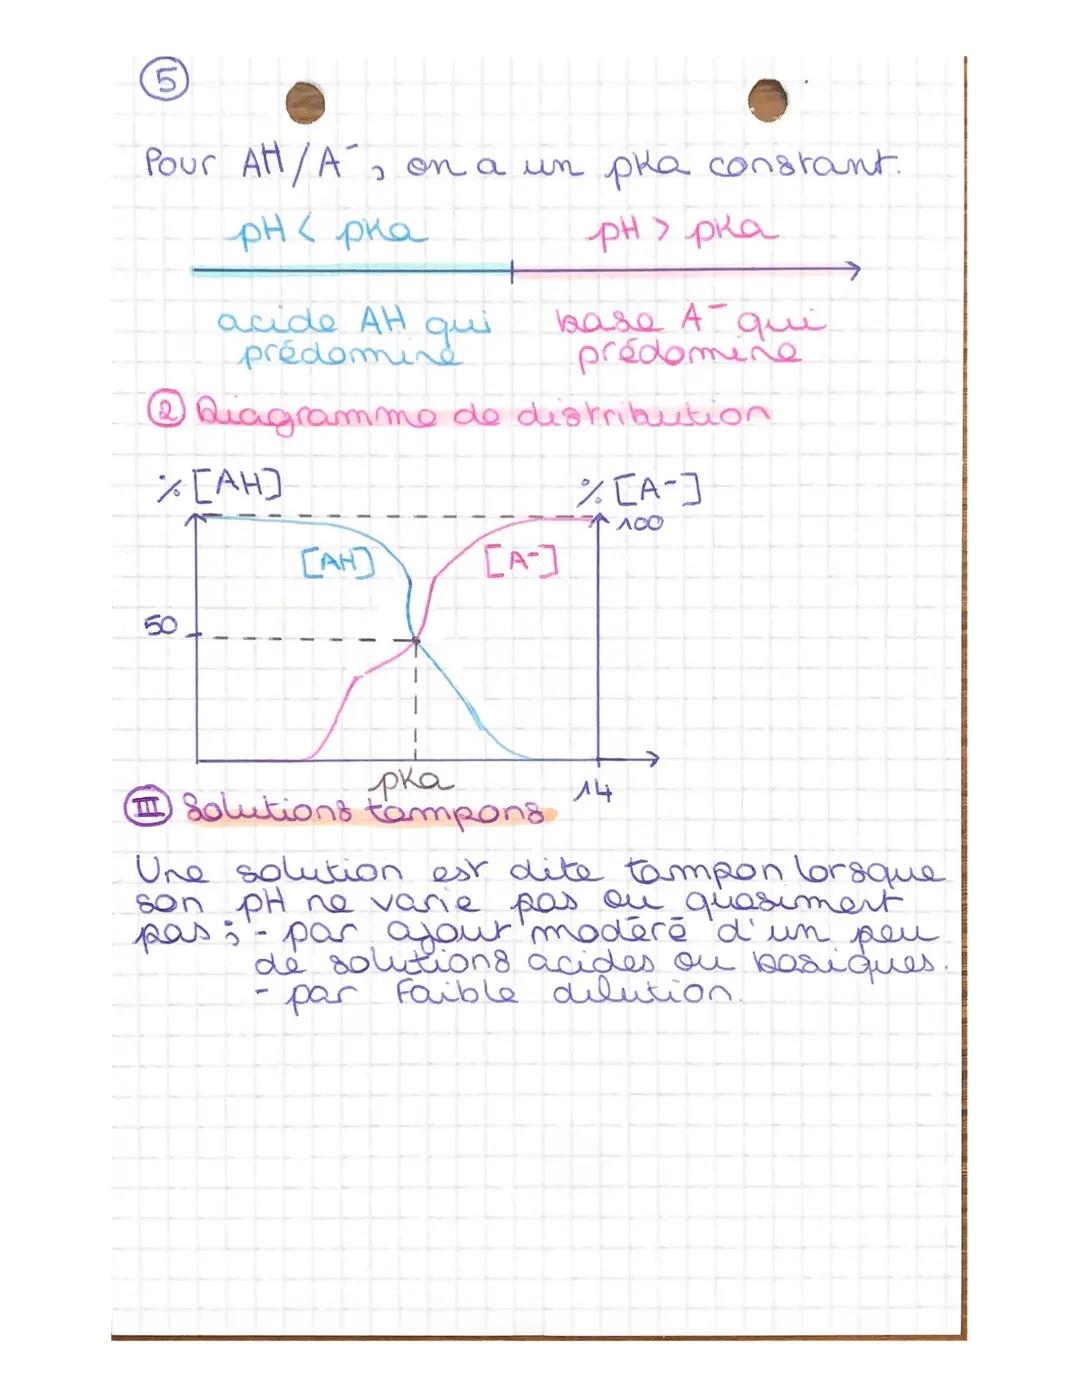 5
Pour AH/A⁻, on a un pka constant.
pH < pka pH > pka
acide AH qui base A⁻ qui
prédomine prédomine
② Diagramme de distribution
% [AH] % [A-]
100
[AH] [A-]
50
pka
14
III Solutions tampons
Une solution est dite tampon lorsque
son pH ne varie pas ou quasiment
pas : - par ajout modéré d'un peu
de solutions acides ou basiques.
- par faible dilution.